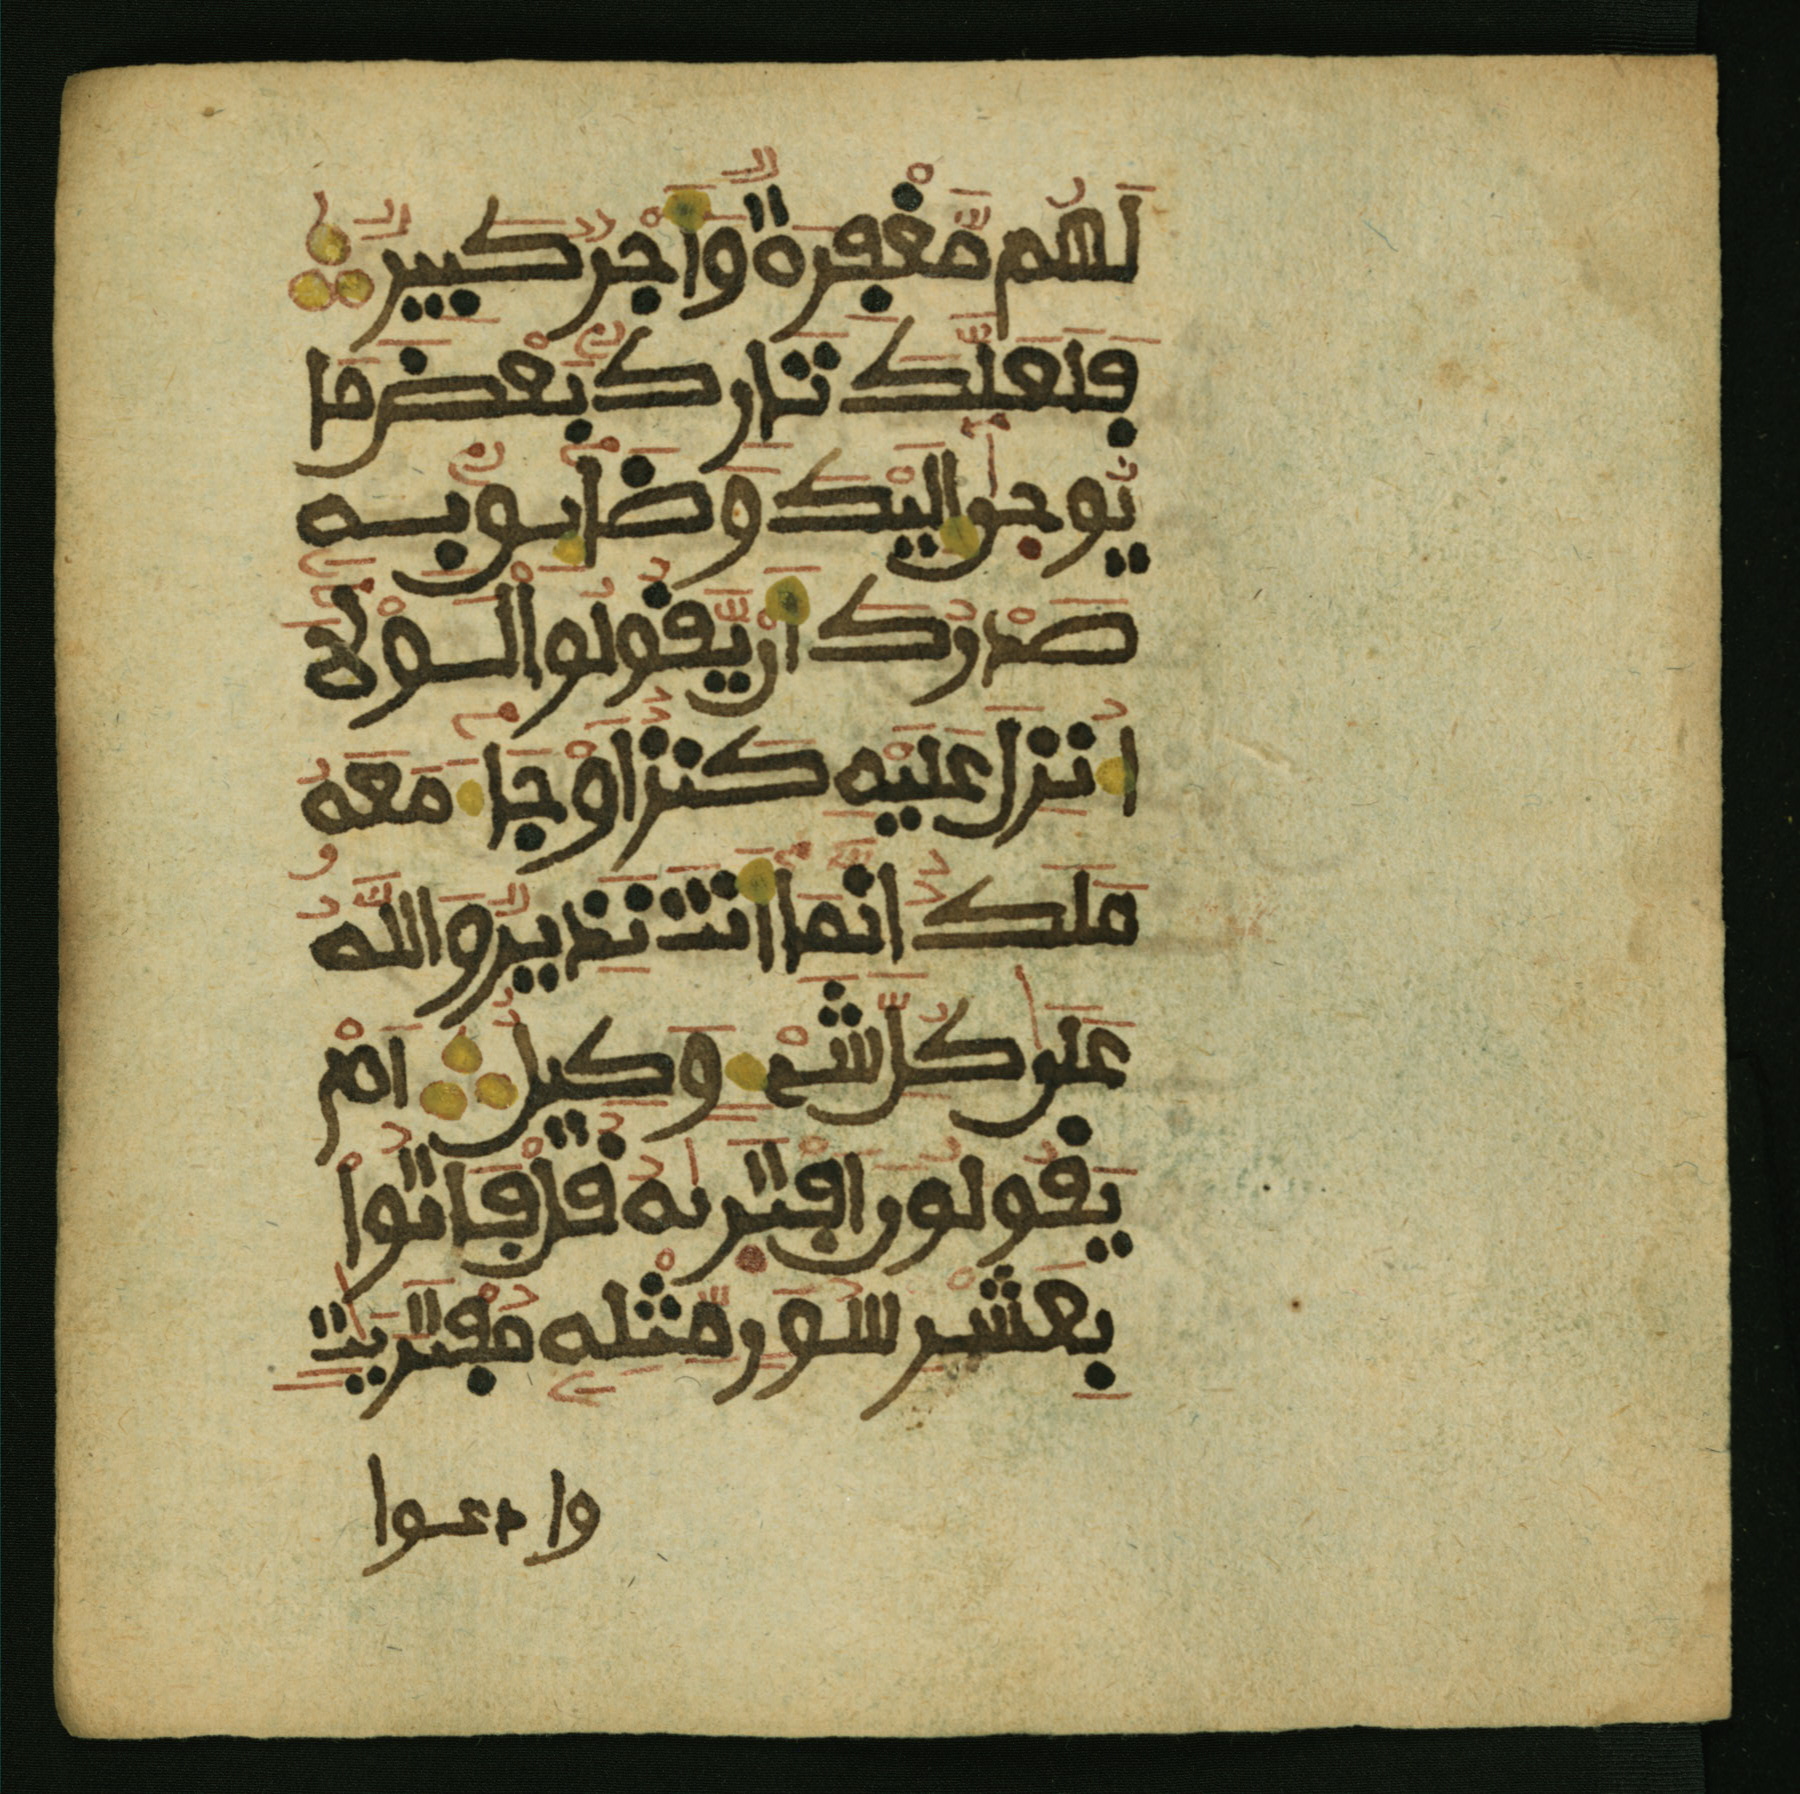 لَهُم مَّغْفِرَةٌ وَأَجْرٌ كَبِيرٌ
فَلَعَلَّكَ تَارِكٌ بَعْضَ مَا
يُوحَىٰ إِلَيْكَ وَضَائِقٌ بِهِ
صَدْرُكَ أَنْ يَّقُولُوا لَوْلَا
أُنزِلَ عَلَيْهِ كَنزٌ أَوْ جَاءَ مَعَهُ
مَلَكٌ إِنَّمَا أَنتَ نَذِيرٌ وَاللَّهُ
عَلَىٰ كُلِّ شَيْءٍ وَكِيلٌ أَمْ
يَقُولُونَ افْتَرَىٰهُ قُلْ فَاتُوا
بِعَشْرِ سُوَرٍ مِّثْلِهِ مُفْتَرَيَٰتٍ
وادعوا